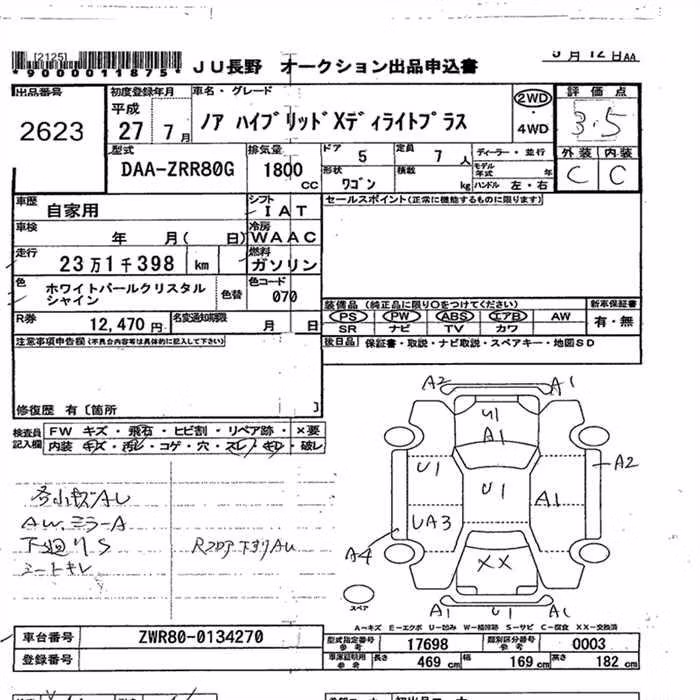 [2125]
*9000011875* JU長野 オークション出品申込書
5月12日AA
出品番号 初度登録年月 車名・グレード 評価点
2623 平成 27 7月 ノア ハイブリッドXディライトプラス 2WD ・ 4WD 3.5
型式 排気量 ドア 定員 ディーラー・並行 外装 内装
DAA-ZRR80G 1800 CC 5 7人 モデル年式 年 C C
形状 積載
ワゴン kg ハンドル 左・右
車歴 自家用 シフト IAT セールスポイント(正常に機能するものに限ります)
車検 年 月( 日) 冷房 WAAC
走行 23万1千398 km 燃料 ガソリン
色 ホワイトパールクリスタルシャイン 色替 色コード 070
装備品(純正品に限り○をつけてください) 新車保証書
R券 12,470円 名変通知期限 月 日 PS PW ABS エアB AW 有・無
SR ナビ TV カワ
注意事項申告欄(不具合内容等は具体的に記入して下さい) 後日品 保証書・取説・ナビ取説・スペアキー・地図SD
修復歴 有〔箇所 〕
検査員記入欄 FW キズ・飛石・ヒビ割・リペア跡・×要
内装 キズ・汚レ・コゲ・穴・スレ・キレ・破レ
A2 A1
U1
A1
U1 U1 A1 A2
UA3
A4 XX
A1 U1 A1
スペア
各小キズAU
AW.ミラーA
下廻りS
シートキレ
Rフロア下まわりAU
A=キズ E=エクボ U=凹み W=補修跡 S=サビ C=腐食 XX=交換済
車台番号 ZWR80-0134270 型式指定番号 参考 17698 類別区分番号 参考 0003
登録番号 車庫証明用 参考 長さ 469cm 幅 169cm 高さ 182cm